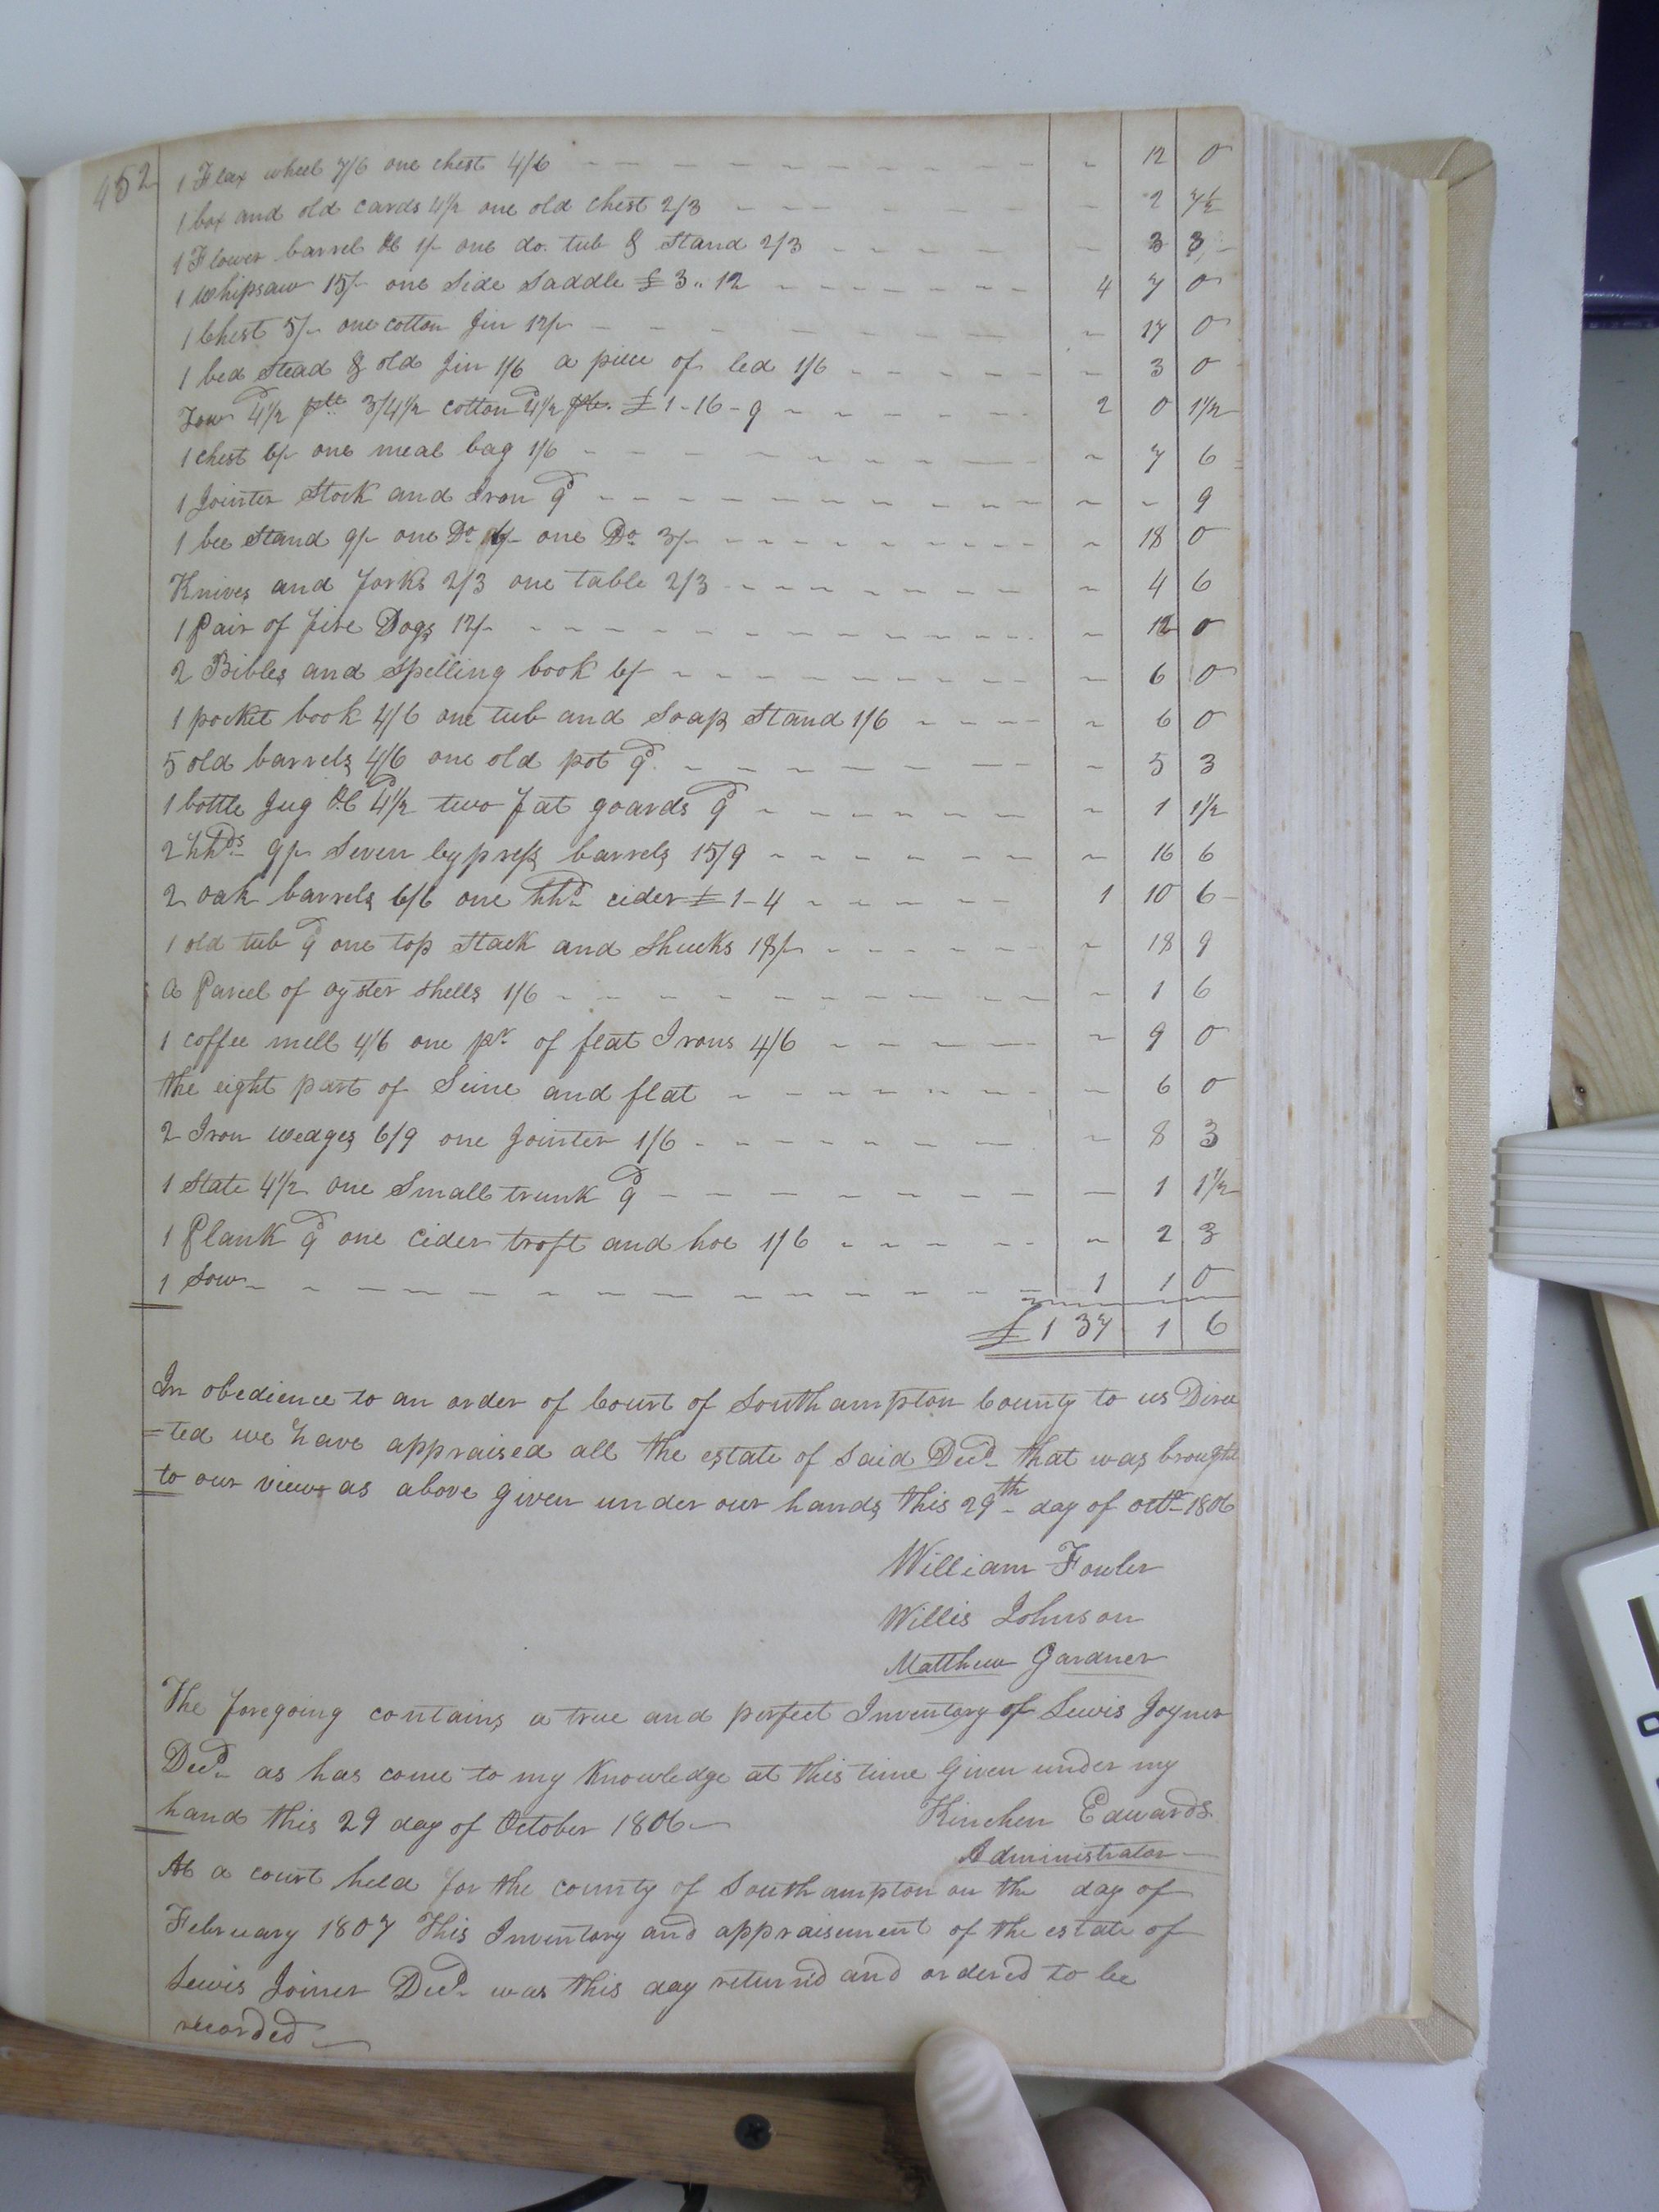 452
1 Flax wheel 7/6 one chest 4/6 - - - - - - - - - - - 12 0
1 box and old cards 4½ one old chest 2/3 - - - - - - - 2 7½
1 Flower barrel &c 1/- one do. tub & Stand 2/3 - - - - - 3 3
1 Whipsaw 15/- one Side Saddle £3..12 - - - - - - - 4 7 0
1 Chest 5/- one cotton Jin 12/- - - - - - - - - - 17 0
1 bed Stead & old Jin 1/6 a piece of led 1/6 - - - - - 3 0
Tow 4½d 3/4½ cotton 4½d £1-16-9 - - - - - - 2 0 1½
1 chest 6/- one meal bag 1/6 - - - - - - - - - - 7 6
1 Jointer Stock and Iron 9d - - - - - - - - - - - - 9
1 bee Stand 9/- one Do. 6/- one Do. 3/- - - - - - - - - 18 0
Knives and forks 2/3 one table 2/3 - - - - - - - - 4 6
1 Pair of fire Dogs 12/- - - - - - - - - - - - - 12 0
2 Bibles and Spelling book 6/- - - - - - - - - - - 6 0
1 pocket book 4/6 one tub and Soap Stand 1/6 - - - - 6 0
5 old barrels 4/6 one old pot 9d - - - - - - - - - 5 3
1 bottle Jug &c 4½d two fat goards 9d - - - - - - - 1 1½
2 hhds 9/- Seven Cypress barrels 15/9 - - - - - - - 16 6
2 oak barrels 6/6 one hhd cider £1-4 - - - - - - 1 10 6
1 old tub 9d one top Stack and Shucks 18/- - - - - - - 18 9
a Parcel of oyster Shells 1/6 - - - - - - - - - - - 1 6
1 coffee mill 4/6 one pr. of flat Irons 4/6 - - - - - - 9 0
the eight part of Seine and flat - - - - - - - - - 6 0
2 Iron wedges 6/9 one Jointer 1/6 - - - - - - - - 8 3
1 Slate 4½ one Small trunk 9d - - - - - - - - - 1 1½
1 Plank 9d one Cider troft and hoe 1/6 - - - - - - 2 3
1 Sow - - - - - - - - - - - - - - 1 1 0
£137 1 6
In obedience to an order of Court of Southampton County to us Direc
=ted we have appraised all the estate of Said Decd. that was brought
to our view as above given under our hands this 29th day of octo. 1806
William Fowler
Willis Johnson
Matthew Gardner
The foregoing contains a true and perfect Inventory of Lewis Joyner
Decd. as has come to my Knowledge at this time Given under my
hand this 29 day of October 1806 Kinchen Edwards
Administrator
At a court held for the county of Southampton on the day of
February 1807 This Inventory and appraisement of the estate of
Lewis Joiner Decd. was this day returnd and orderd to be
recorded